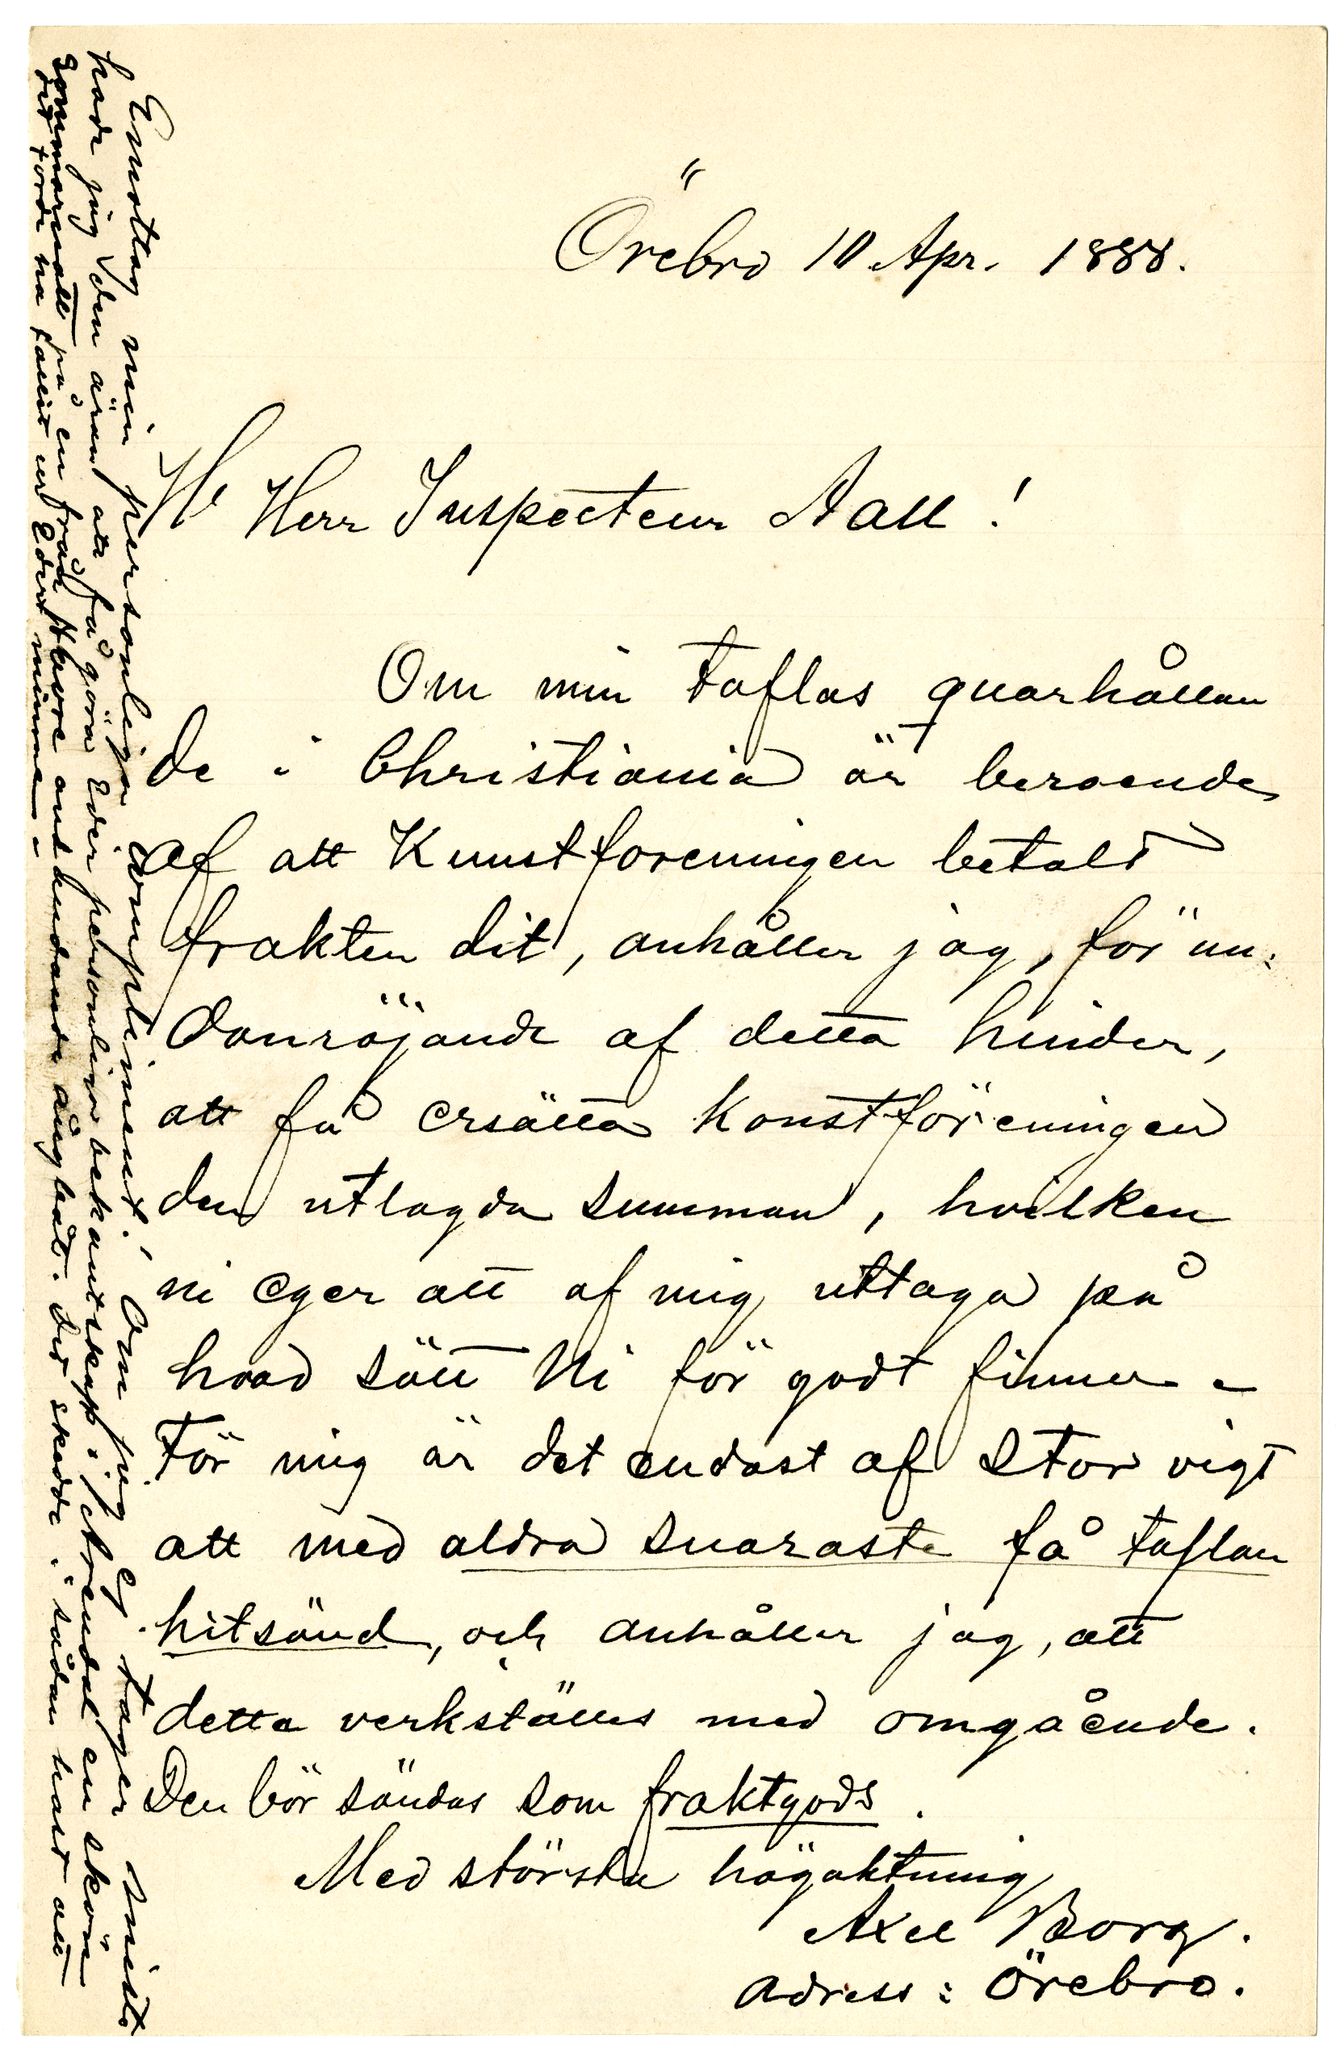 Örebro 10 Apr. 1888.
Hr Herr Inspecteur Aall!
Om min taflas quarhållan
de i Christiania är beroende
af att Kunstforeningen betalt
frakten dit, anhåller jag, för un:
danröjande af detta hinder,
att få ersätta Konstföreningen
den utlagda summan, hvilken
ni eger att af mig uttaga på
hvad sätt Ni för godt finner -
För mig är det endast af stor vigt
att med aldra snaraste få taflan
hitsänd, och anhåller jag, att
detta verkställes med omgående.
Den bör sändas som fraktgods.
Med största högaktning
Axel Borg.
adress: Örebro.
Emottag min personliga compliment! Om jag ej tager miste
hade jag den äran att få göra Eder personliga bekantskap i Arendal en skön
sommarnatt på en från Havre anländande ångbåt. Det skedde i sådan hast att
det torde ha fallit ur Edert minne -